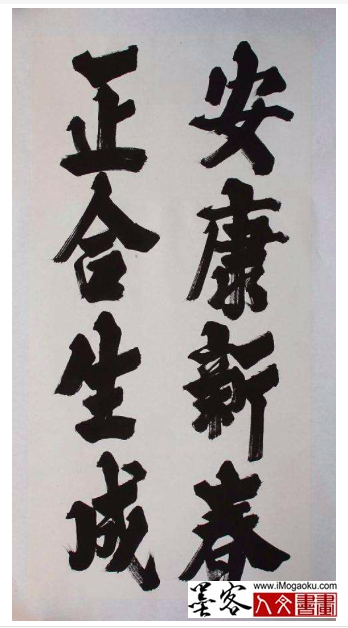 安康新春
正合生成
墨客
www.iMogaoku.com
人文書畫